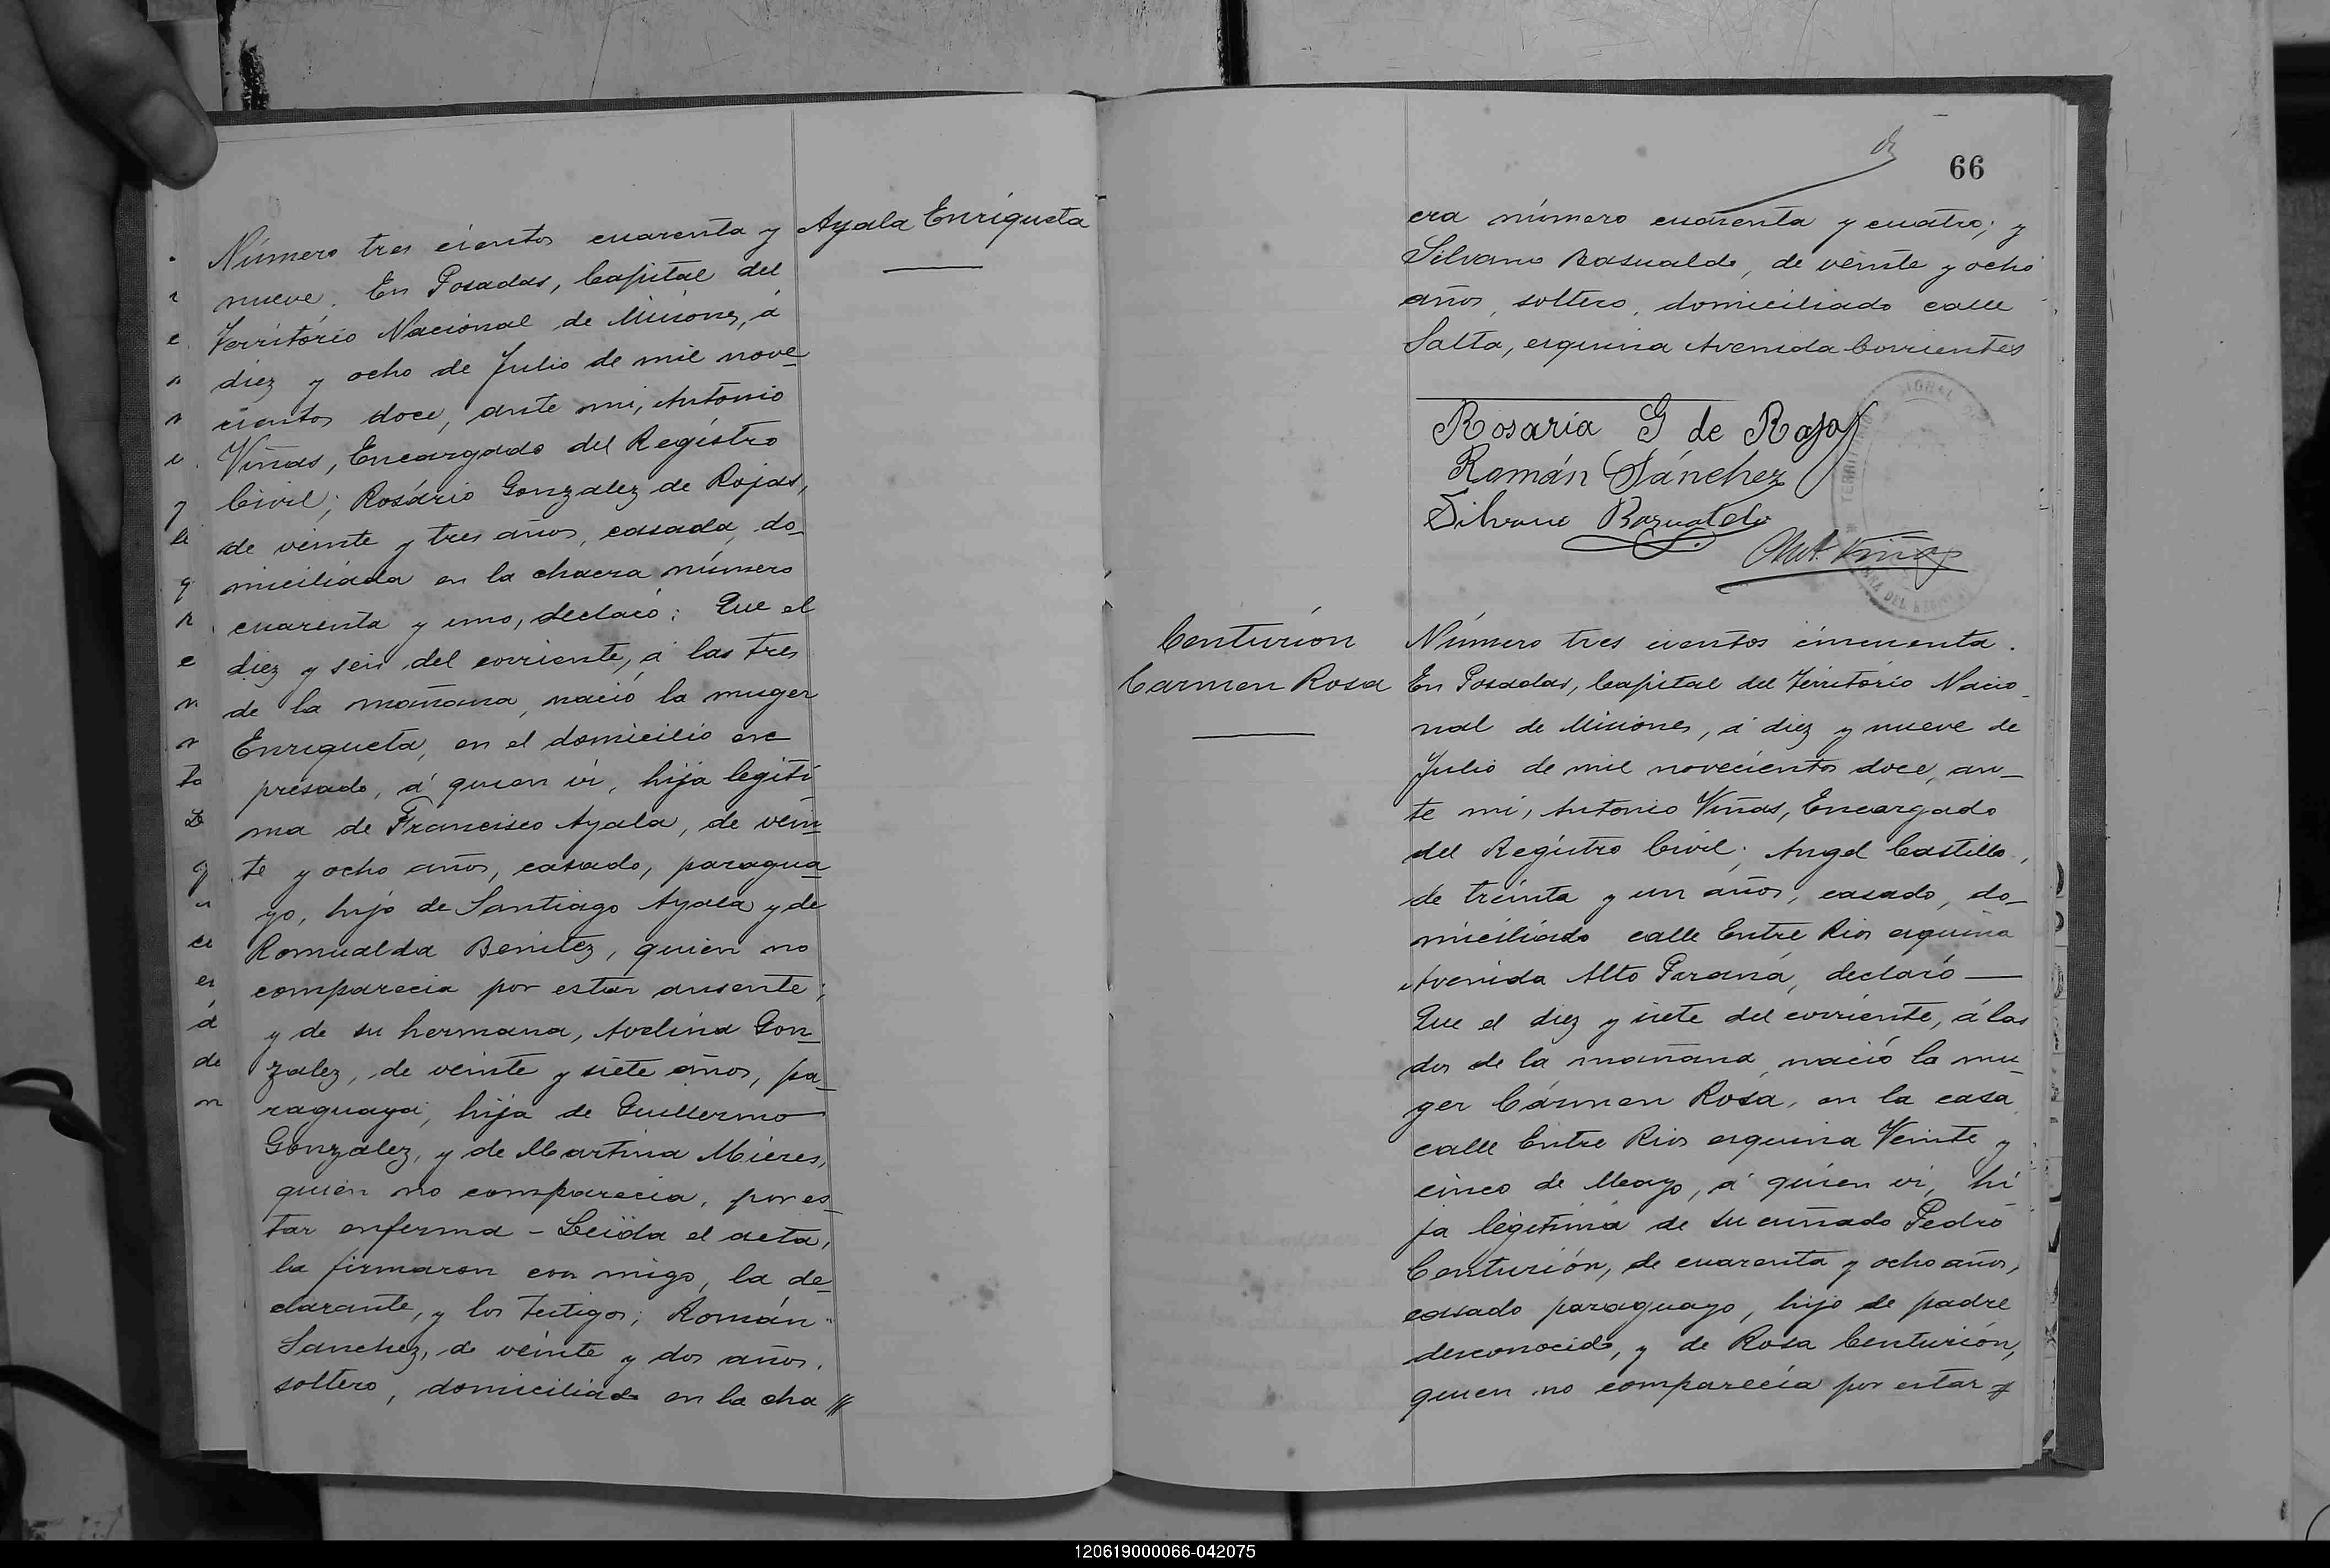 Ayala Enriqueta
Número tres cientos cuarenta y
nueve. En Posadas, Capital del
Territorio Nacional de Misiones, á
diez y ocho de Julio de mil nove_
cientos doce, ante mi, Antonio
Viñas, Encargado del Registro
Civil; Rosário Gonzalez de Rojas,
de veinte y tres años, casada, do_
miciliada en la chacra número
cuarenta y uno, declaró: Que el
diez y seis del corriente, á las tres
de la mañana, nació la muger
Enriqueta, en el domicilio ex
presado, á quien vi, hija legiti
ma de Francisco Ayala, de vein_
te y ocho años, casado, paragua_
yo, hijo de Santiago Ayala y de
Romualda Benitez, quien no
comparecia por estar ausente;
y de su hermana, Avelina Gon_
zalez, de veinte y siete años, pa_
raguaya, hija de Guillermo
Gonzalez, y de Martina Mieres,
quien no comparecia, por es_
tar enferma - Leida el acta,
la firmaron con migo, la de_
clarante, y los testigos; Román
Sanchez, de veinte y dos años,
soltero, domiciliado en la cha //
66
cra número cuarenta y cuatro; y
Silvano Basualdo, de veinte y ocho
años, soltero, domiciliado calle
Salta, esquina Avenida Corrientes
Rosaria G de Rojas
Román Sánchez
Silvano Bazualdo
Ant. Viñas
Centurión
Carmen Rosa
Número tres cientos cincuenta.
En Posadas, Capital del Territorio Nacio_
nal de Misiones, á diez y nueve de
Julio de mil novecientos doce, an_
te mi, Antonio Viñas, Encargado
del Registro Civil; Angel Castillo,
de treinta y un años, casado, do_
miciliado calle Entre Rios esquina
Avenida Alto Paraná, declaró —
Que el diez y siete del corriente, á las
dos de la mañana, nació la mu_
ger Cármen Rosa, en la casa
calle Entre Rios esquina Veinte y
cinco de Mayo, á quien vi, hi
ja legitima de su cuñado Pedro
Centurión, de cuarenta y ocho años,
casado paraguayo, hijo de padre
desconocido, y de Rosa Centurión,
quien no comparecía por estar
120619000066-042075